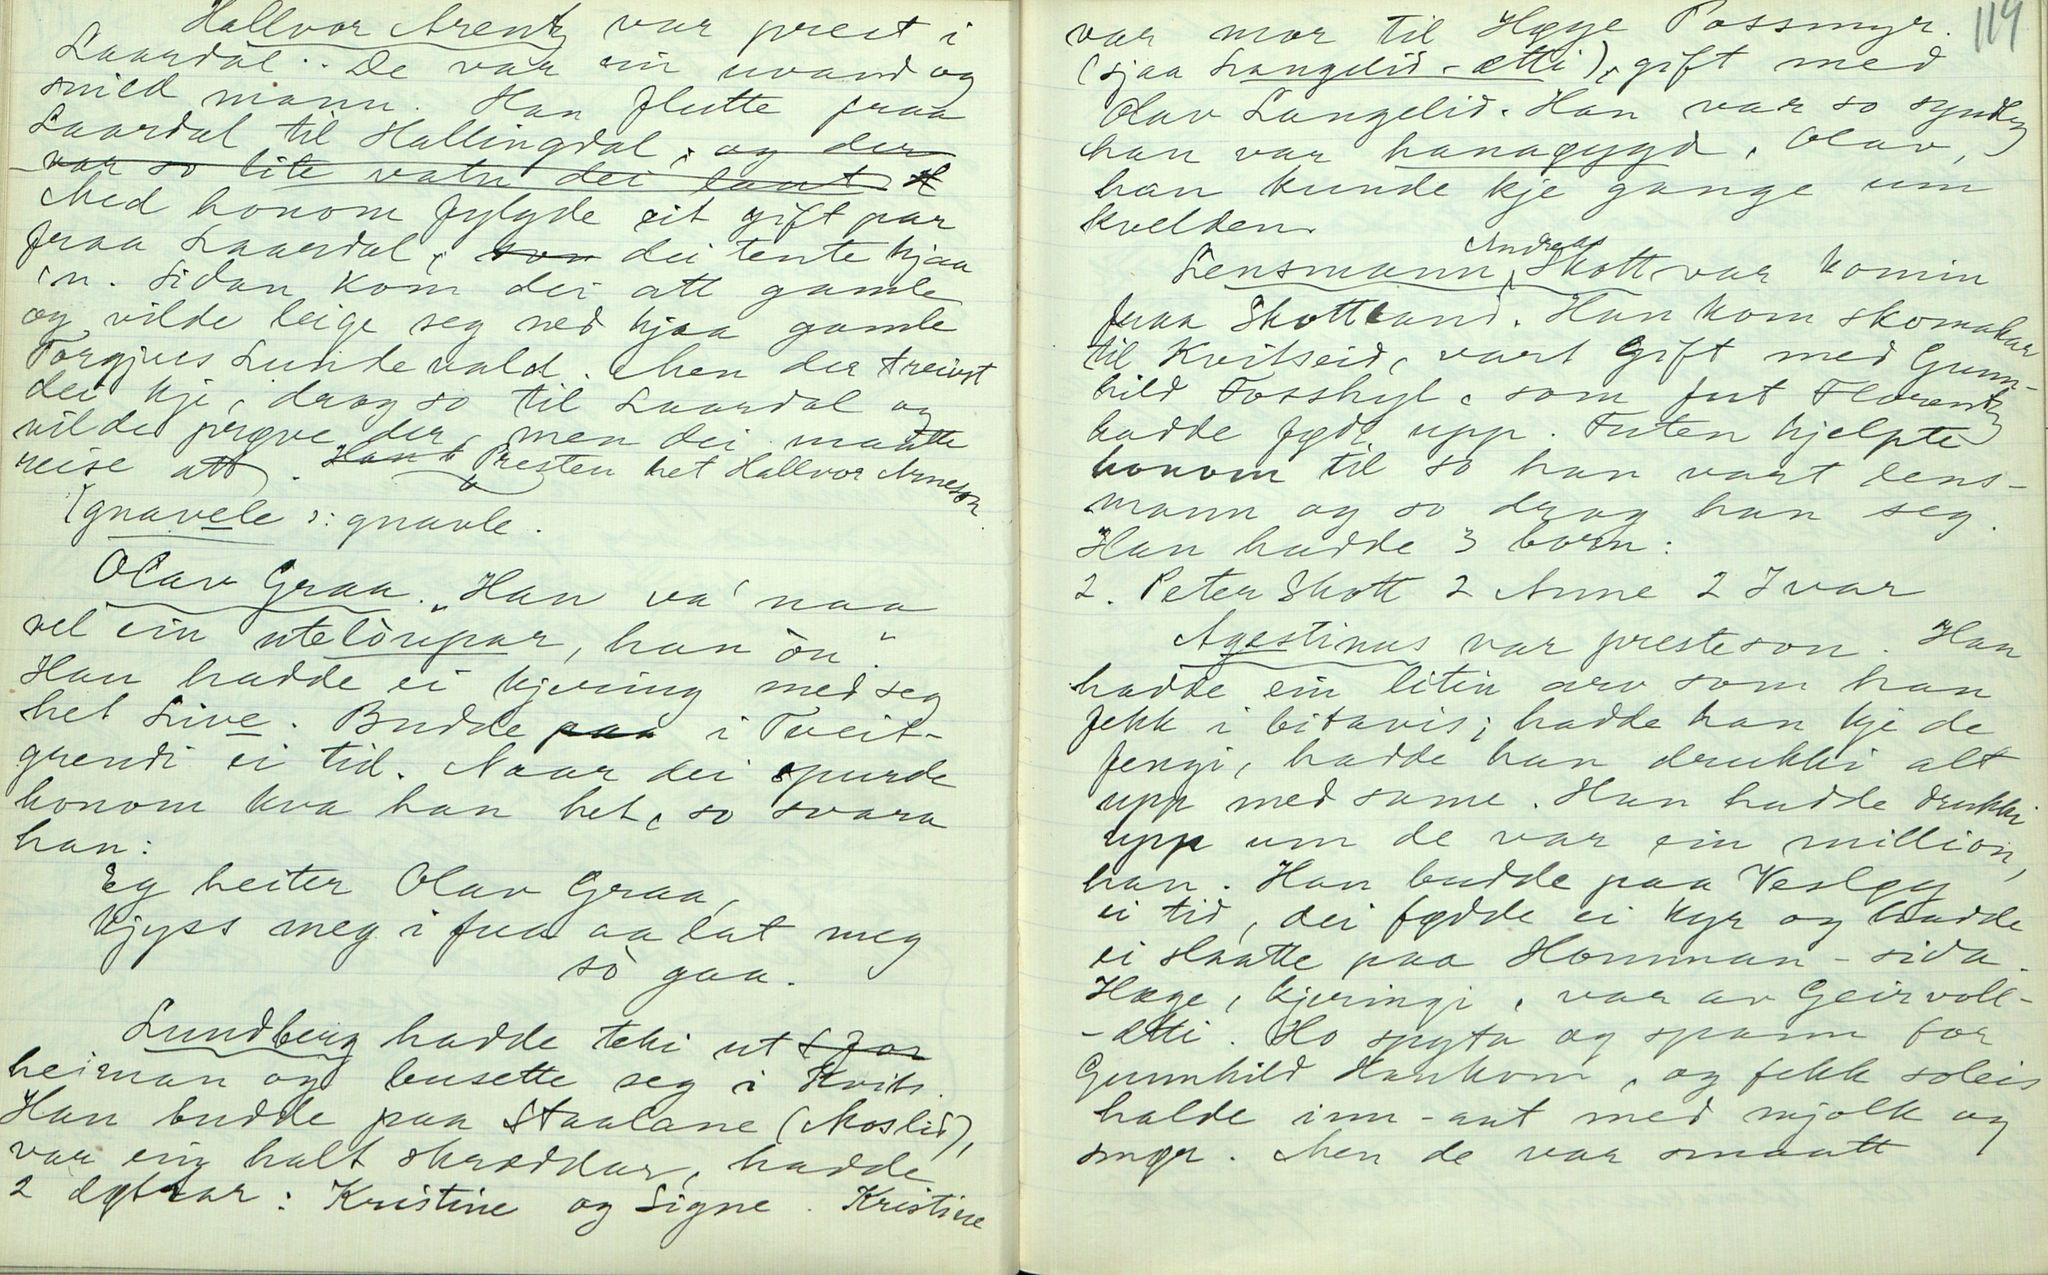 Hallvor Arentz var prest i
Laardal. De var ein uvand og
snild mann. Han flutte fraa
Laardal til Hallingdal, og der
var so lite vatn dei laut H
Med honom fylgde eit gift par
fraa Laardal, som dei tente hjaa
'n. Sidan kom dei att gamle
og vilde leige seg ned hjaa gamle
Torgjus Lundevald. Men der treivst
dei kje, drog so til Laardal og
vilde prøve der, men dei maatte
reise att. Han Presten het Hallvor Arneson.
(gnavele ɔ: gnavle.
Olav Graa. "Han va' naa
vel ein utelòupar, han òu."
Han hadde ei kjering med seg
het Live. Budde paa i Tveit-
grendi ei tid. Naar dei spurde
honom kva han het, so svara
han:
Eg heiter Olav Graa,
kjyss meg i fua aa lat meg
sò gaa.
Lundberg hadde teki ut
heiman og busette seg i Kvits.
Han budde paa Staalane (Moslid),
var ein halt skreddar, hadde
2 døtrar: Kristine og Signe. Kristine
119
var mor til Høge Possmyr.
(sjaa Langelid-ætti), gift med
Olav Langelid. Han var so synleg
han var hanagygd, Olav,
han kunde kje gange um
kvelden.
Lensmann Andreas Skott var komin
fraa Skottland. Han kom skomakar
til Kvitseid, vart gift med Gunn-
hild Fosshyl, som fut Florentz
hadde født upp. Futen hjelpte
honom til so han vart lens-
mann og so drog han seg.
Han hadde 3 born:
2. Peter Skott 2 Anne 2 Ivar
Agestinus var presteson. Han
hadde ein litin arv som han
fekk i bitavis; hadde han kje de
fengi, hadde han drukki alt
upp med same. Han hadde drukki
upp um de var ein million,
han. Han budde paa Vesløy
ei tid, dei fødde ei kyr og hadde
ei slaatte paa Homman-sida.
Høge, kjeringi, var av Geirvoll-
-ætti. Ho spyta og spann for
Gunnhild Haukom, og fekk soleis
halde inn-aat med mjolk og
smør. Men de var smaatt